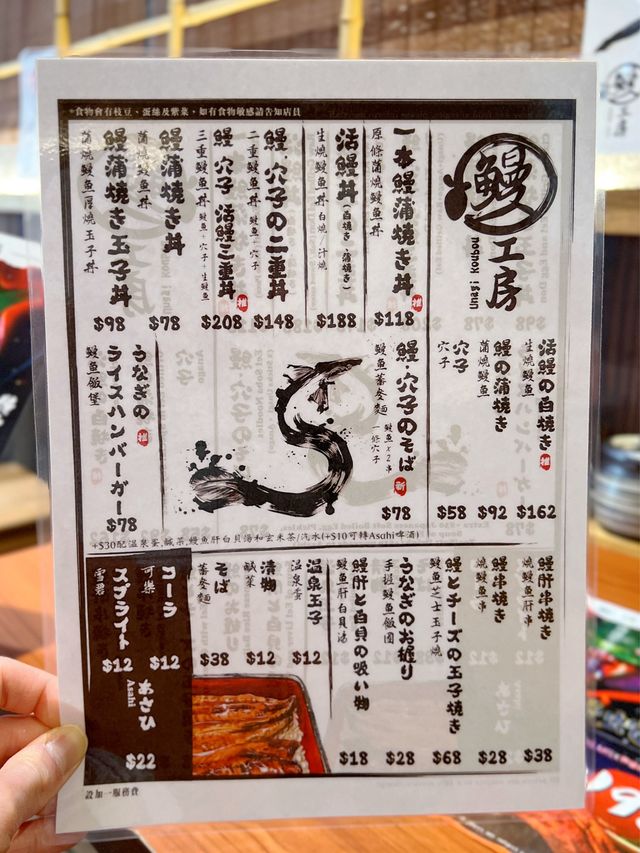 *食物會有枝豆、蛋絲及紫菜，如有食物敏感請告知店員
鰻
工房
Unagi Kohbou
一本鰻蒲焼き丼
原條蒲燒鰻魚丼
推
$118
活鰻丼(白焼き/蒲焼き)
生燒鰻魚丼 白燒/汁燒
$188
鰻·穴子の二重丼
二重鰻魚丼 鰻魚+穴子
$148
鰻 穴子 活鰻三重丼
三重鰻魚丼 鰻魚+穴子+生鰻魚
推
$208
鰻蒲焼き丼
蒲燒鰻魚丼
$78
鰻蒲焼き玉子丼
蒲燒鰻魚厚燒玉子丼
$98
活鰻の白焼き
生燒鰻魚
推
$162
鰻の蒲焼き
蒲燒鰻魚
$92
穴子
穴子
$58
鰻·穴子のそば
鰻魚蕎麥麵 鰻魚x2串 一條穴子
新
$78
うなぎの
ライスハンバーガー
鰻魚飯堡
推
$78
+$30配溫泉蛋,鹹菜,鰻魚肝白貝湯和玄米茶/汽水(+$10可轉Asahi啤酒)
鰻肝串焼き
燒鰻魚肝串
$38
鰻串焼き
燒鰻魚串
$28
鰻とチーズの玉子焼き
鰻魚芝士玉子燒
$68
うなぎのお握り
手握鰻魚飯團
$28
鰻肝と白貝の吸い物
鰻魚肝白貝湯
$18
温泉玉子
溫泉蛋
$12
漬物
鹹菜
$12
そば
蕎麥麵
$38
コーラ
可樂
$12
スプライト
雪碧
$12
あさひ
Asahi
$22
設加一服務費